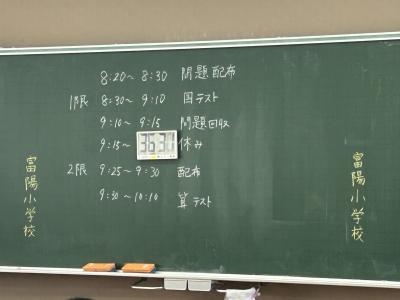 8:20～8:30 問題配布
1限 8:30～9:10 国テスト
9:10～9:15 問題回収
9:15～ 休み
2限 9:25～9:30 配布
9:30～10:10 算テスト
富陽小学校
富陽小学校